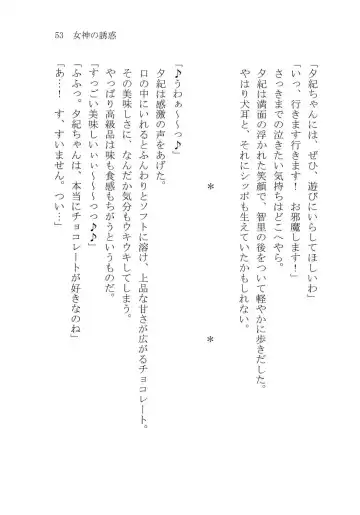 53　女神の誘惑
「夕紀ちゃんには、ぜひ、遊びにいらしてほしいわ」
「いっ、行きます行きます！　お邪魔します！」
さっきまでの泣きたい気持ちはどこへやら。
夕紀は満面の浮かれた笑顔で、智里の後をついて軽やかに歩きだした。
やはり犬耳と、それにシッポも生えていたかもしれない。
＊　＊
「♪うわぁ～～っっ♪」
夕紀は感激の声をあげた。
口の中にいれるとふんわりとソフトに溶け、上品な甘さが広がるチョコレート。
その美味しさに、なんだか気分もウキウキしてしまう。
やっぱり高級品は味も食感もちがうというものだ。
「すっごい美味しいぃぃ～～～っっ♪♪」
「ふふっ。夕紀ちゃんは、本当にチョコレートが好きなのね」
「あ…！　す、すいません。つい…」